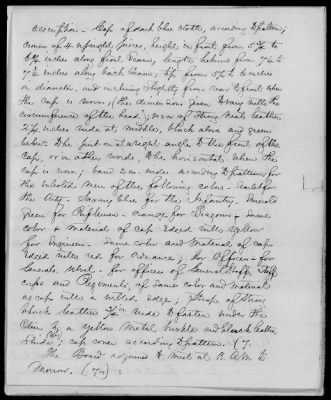 Description - Cap of dark blue cloth, according to pattern;
crown of 4 upright pieces, height in front from 5 3/4 to
6 1/4 inches along front seam, length behind from 7 1/4 to
7 3/4 inches along back seam, tip from 5 3/4 to 6 inches
in diameter, and inclining slightly from rear to front when
the cap is worn, (the dimensions given to vary with the
circumference of the head); visor of strong neats leather
2 1/4 inches wide at middle, black above and green
below to be put on at a right angle to the front of the
cap, or in other words, to be horizontal when the
cap is worn; band 2 in. wide according to pattern for
the enlisted men of the following colors - Scarlet for
the Arty - Saxony blue for the Infantry. Emerald
green for Riflemen - orange for Dragoons - Same
color & material of cap edged with yellow
for Engineers - Same color and material of cap
edged with red for Ordnance; for Officers - for
Generals, Velvet - for officers of General Staff, Staff
corps and Regiments, of same color and material
as cap with a welted edge; Strap of strong
black leather wide to fasten under the
Chin by a yellow metal buckle and black leather
Slide; cap cover according to pattern. (7.
The Board adjourned to meet at 10 A.M. to
morrow.